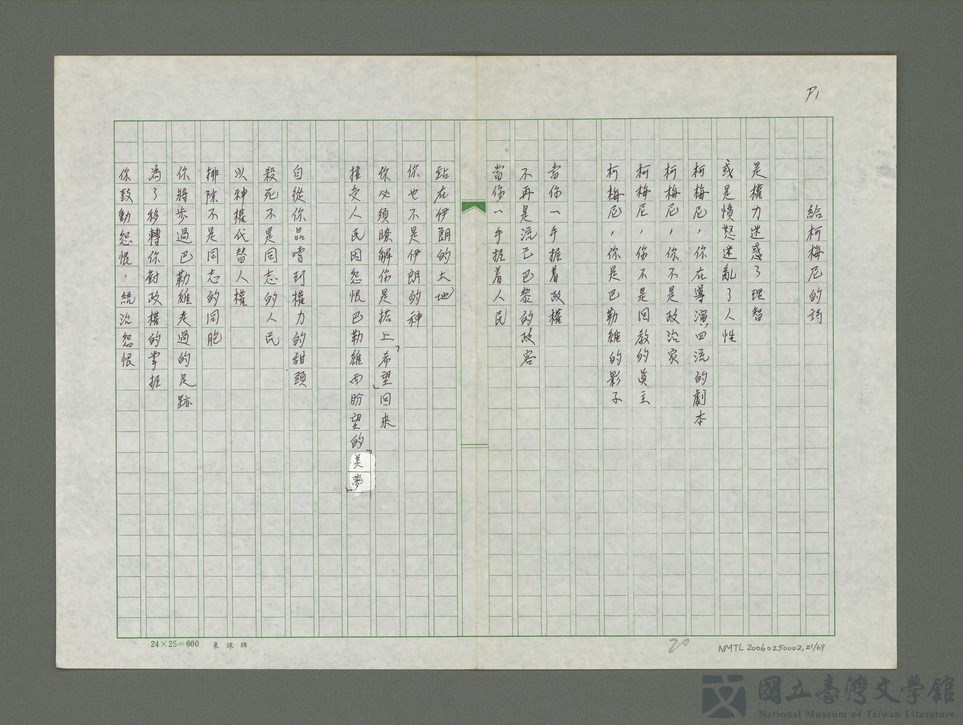 P1
給柯梅尼的詩
是權力迷惑了理智
或是憤怒迷亂了人性
柯梅尼，你在導演四流的劇本
柯梅尼，你不是政治家
柯梅尼，你不是回教的真主
柯梅尼，你是巴勒維的影子
當你一手握着政權
不再是流亡巴黎的政客
當你一手握着人民
站在伊朗的土地
你也不是伊朗的神
你必須瞭解你是搭上「希望」回來
接受人民因怨恨巴勒維而盼望的「美夢」
自從你品嚐到權力的甜頭
殺死不是同志的人民
以神權代替人權
排除不是同志的同胞
你將步過巴勒維走過的足跡
為了移轉你對政權的掌握
你鼓動怨恨，統治怨恨
24×25=600 東球牌
20
NMTL 20060250002, 21/69
國立臺灣文學館
National Museum of Taiwan Literature